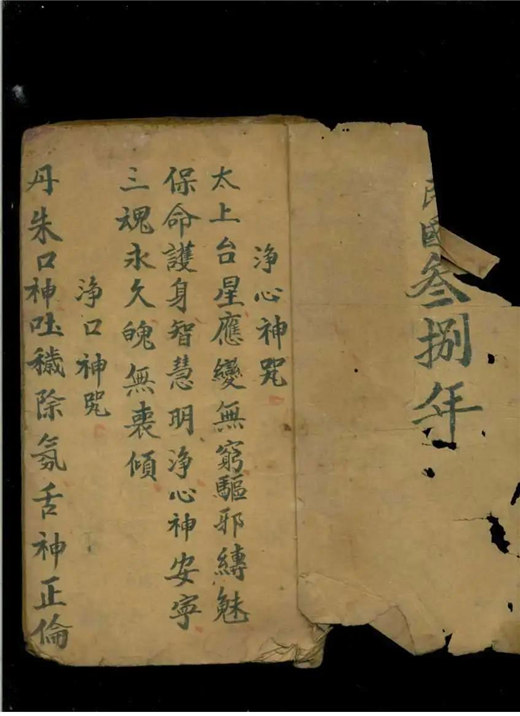 民國叁捌年
淨心神咒
太上台星應變無窮驅邪縛魅
保命護身智慧明淨心神安寧
三魂永久魄無喪傾
淨口神咒
丹朱口神吐穢除氛舌神正倫